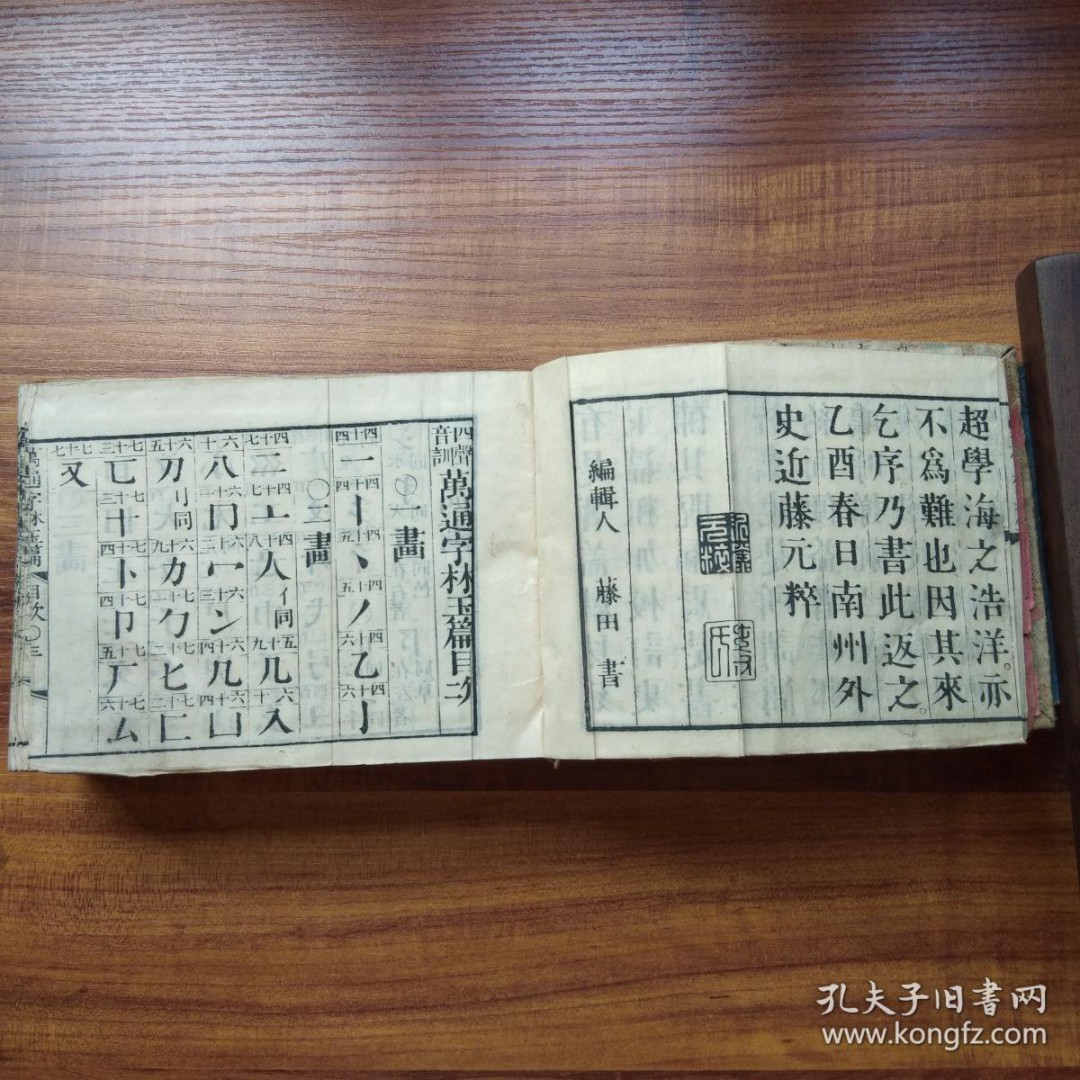 超學海之浩洋。亦
不爲難也因其來
乞序。乃書此返之。
乙酉春日南州外
史近藤元粹
編輯人 藤田 書
四聲音訓 萬通字林玉篇目次
一畫
一 丨 丶 丿 乙 亅
〇二畫
二 亠 人 亻同 儿 入
八 冂 冖 冫 几 凵
刀 刂同 力 勹 匕 匚
匸 十 卜 卩 厂 厶
又
萬通字林玉篇 目次 〇 三
孔夫子旧書网
www.kongfz.com